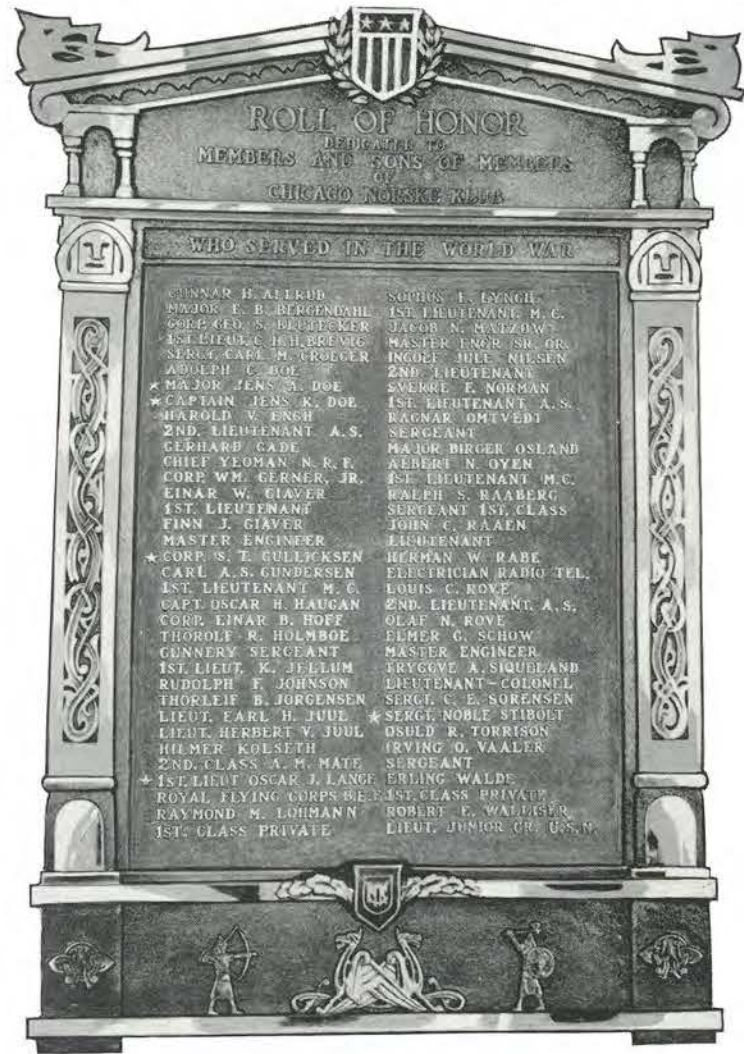 ROLL OF HONOR
DEDICATED TO
MEMBERS AND SONS OF MEMBERS
OF
CHICAGO NORSKE KLUB
WHO SERVED IN THE WORLD WAR
GUNNAR H. ALLRUD
MAJOR E. B. BERGENDAHL
CORP. GEO. S. BLUTECKER
1ST. LIEUT. C. H. H. BREVIG
SERGT. CARL M. CROEGER
ADOLPH C. DOE
MAJOR JENS A. DOE
CAPTAIN JENS K. DOE
HAROLD V. ENGH
2ND. LIEUTENANT A.S.
GERHARD GADE
CHIEF YEOMAN N.R.F.
CORP. WM. GERNER, JR.
EINAR W. GIAVER
1ST. LIEUTENANT
FINN J. GIAVER
MASTER ENGINEER
CORP. S. T. GULLICKSEN
CARL A.S. GUNDERSEN
1ST. LIEUTENANT M.C.
CAPT. OSCAR H. HAUGAN
CORP. EINAR B. HOFF
THOROLF R. HOLMBOE
GUNNERY SERGEANT
1ST. LIEUT. K. JELLUM
RUDOLPH F. JOHNSON
THORLEIF B. JORGENSEN
LIEUT. EARL H. JUUL
LIEUT. HERBERT V. JUUL
HILMER KOLSETH
2ND. CLASS A. M. MATE
1ST. LIEUT OSCAR J. LANGE
ROYAL FLYING CORPS B.E.F.
RAYMOND M. LOHMANN
1ST. CLASS PRIVATE
SOPHUS E. LYNGH
1ST. LIEUTENANT M.C.
JACOB N. MATZOW
MASTER ENGR SR. GR.
INGOLF JULE NILSEN
2ND. LIEUTENANT
SVERRE F. NORMAN
1ST. LIEUTENANT A.S.
RAGNAR OMTVEDT
SERGEANT
MAJOR BIRGER OSLAND
ALBERT N. OYEN
1ST. LIEUTENANT M.C.
RALPH S. RAABERG
SERGEANT 1ST. CLASS
JOHN C. RAAEN
LIEUTENANT
HERMAN W. RABE
ELECTRICIAN RADIO TEL.
LOUIS C. ROVE
2ND. LIEUTENANT. A.S.
OLAF N. ROVE
ELMER G. SCHOW
MASTER ENGINEER
TRYGGVE A. SIQUELAND
LIEUTENANT-COLONEL
SERGT. C. E. SORENSEN
SERGT. NOBLE STIBOLT
OSULD R. TORRISON
IRVING O. VAALER
SERGEANT
ERLING WALDE
1ST. CLASS PRIVATE
ROBERT E. WALLISER
LIEUT. JUNIOR GR. U.S.N.